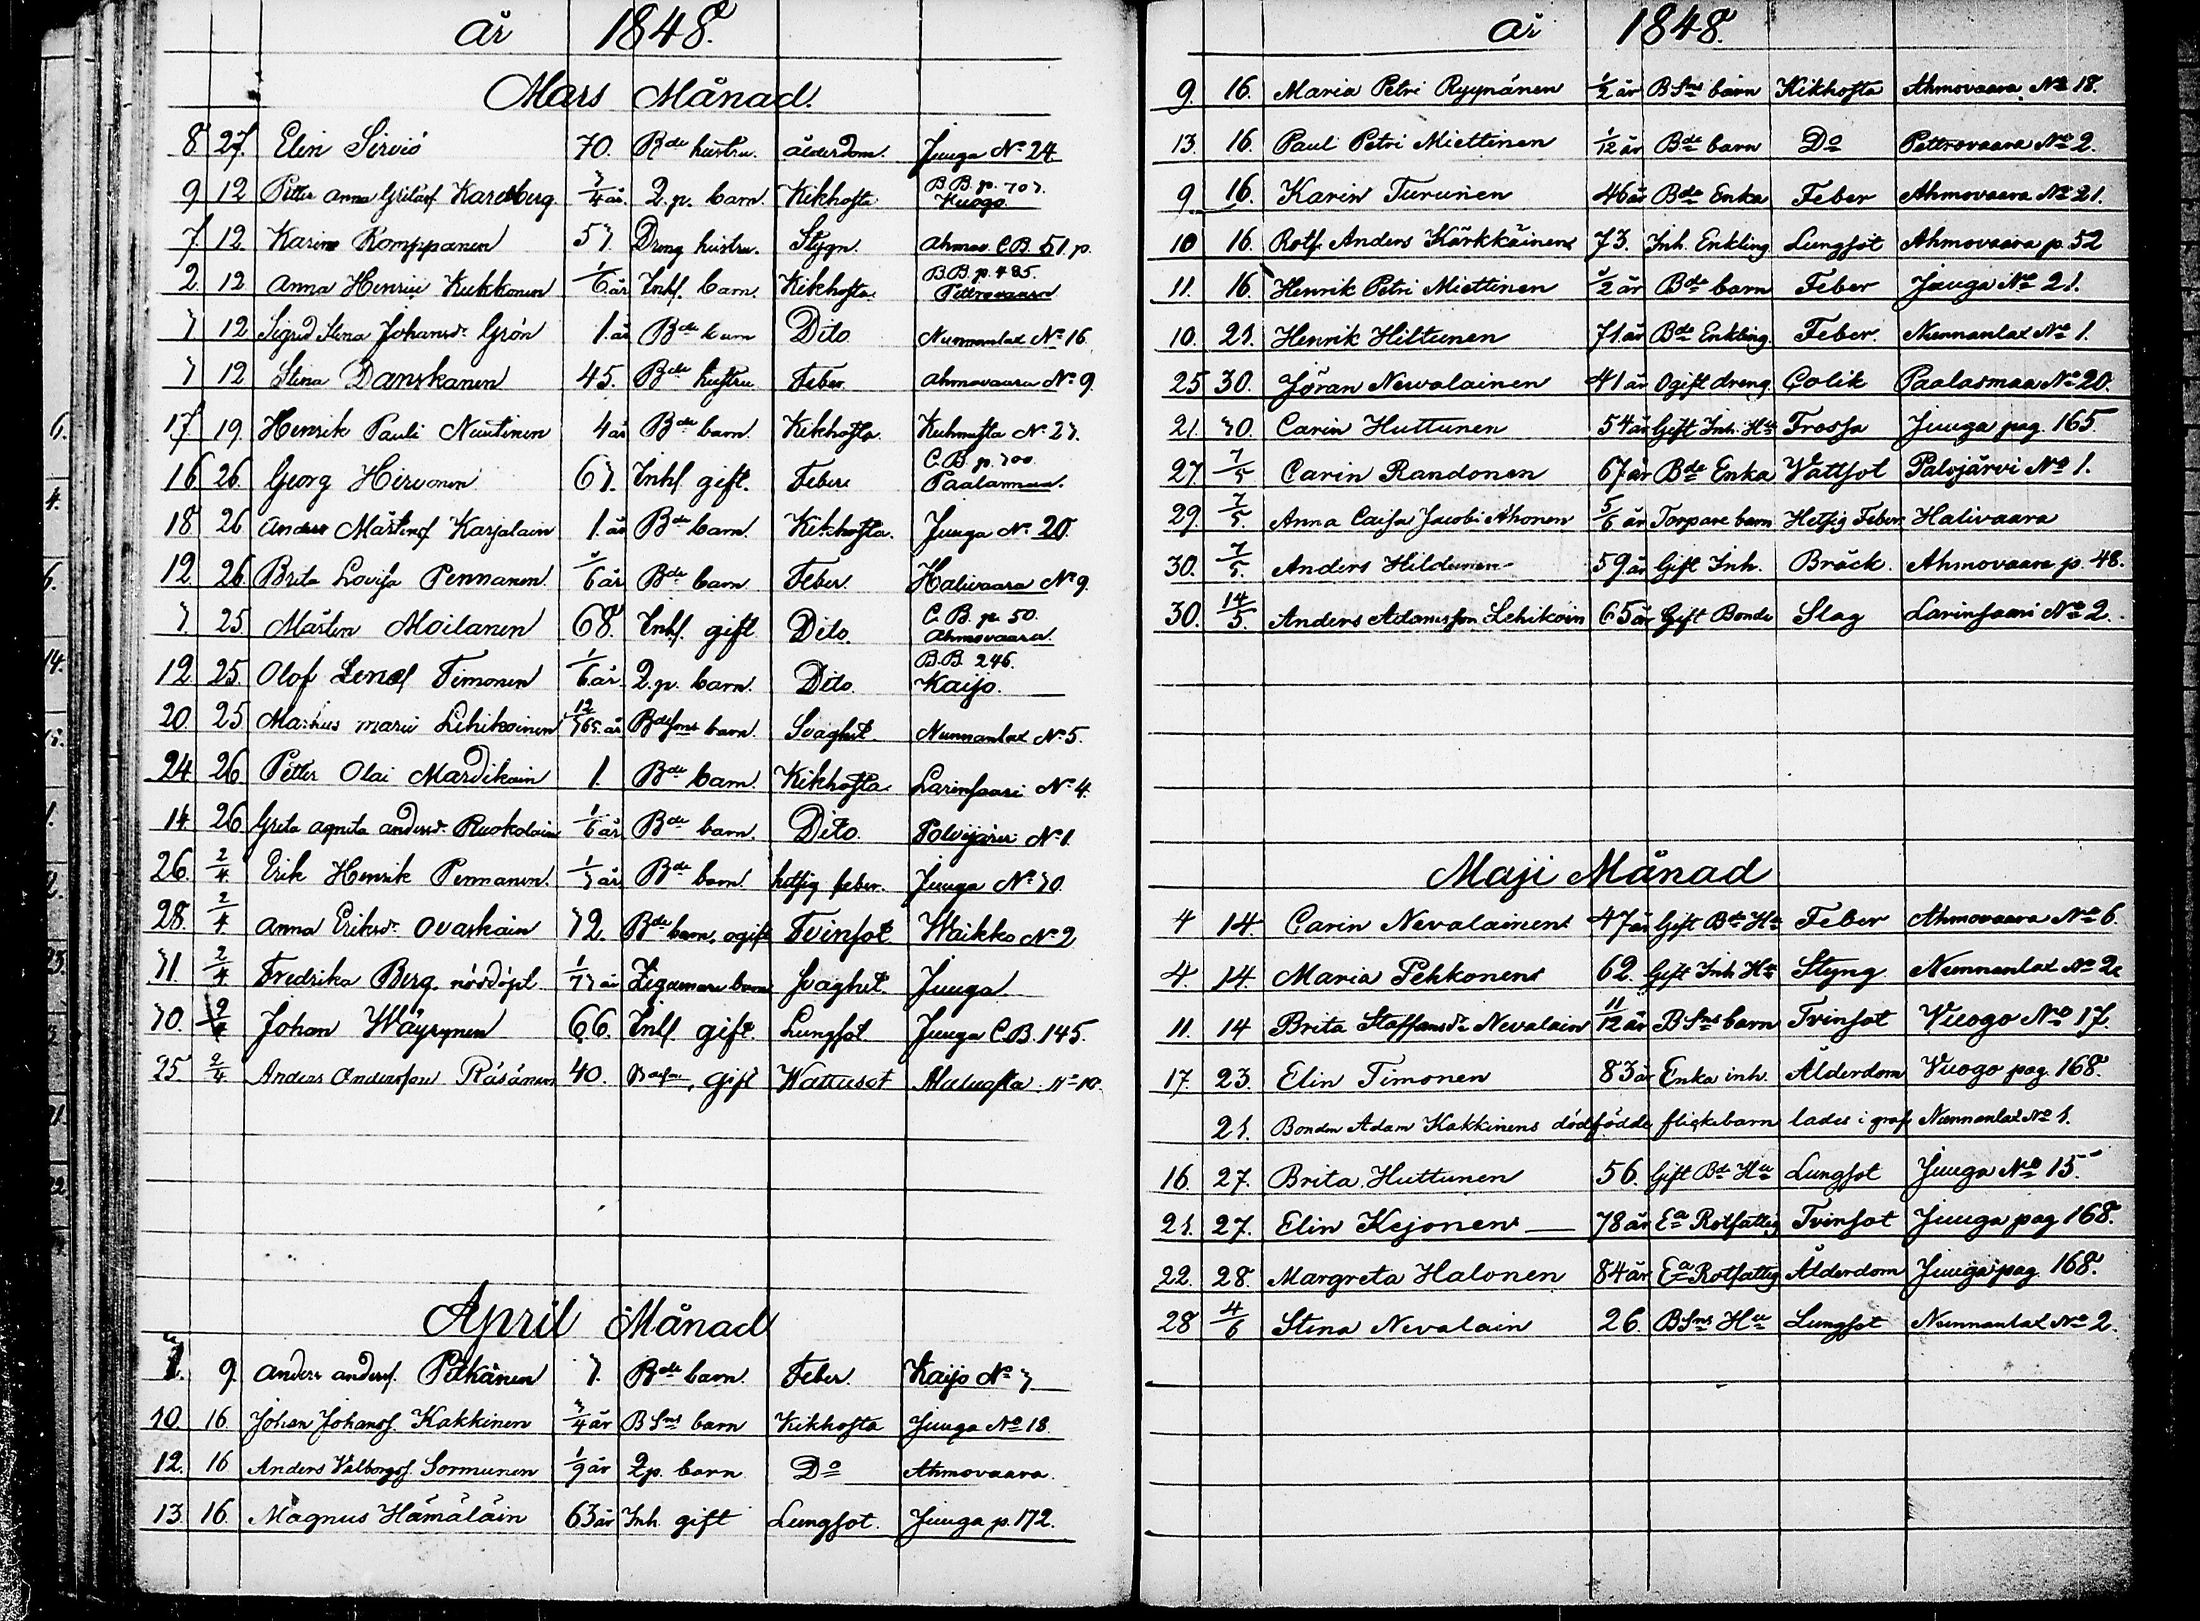 år 1848.
Mars Månad.
8 27. Elin Sirviö 70. Bde hustru. ålderdom. Juuga No 24
9 12 Petter Anna Karelberg 3/4 år. 2. p. barn. Kikhosta B.B. p. 303. Vuogo.
7. 12. Karin Komppanen 53. Dreng hustru. Stygn. Ahmov. C.B. 51. p.
2. 12 Anna Henrici Kukkonen 1/6 år Inhs. barn. Kikhosta. B.B. p. 485. Pettrovaara
3 12 Sigrid Stina Johansdr. Grön 1. år Bde barn Dito Nunnanlax No 16.
3 12 Stina Danskanen 45. Bde hustru Feber. Ahmovaara No 9.
17 19. Henrik Pauli Nuutinen 4 år Bde barn. Kikhosta. Kuhnusta No 23.
16 26. Georg Hirvonen 63. Inhs. gift. Feber C.B. p. 300. Paalasmaa.
18 26 Anders Mårtensf Karjalain 1. år Bde barn. Kikhosta. Juuga No 20.
12 26 Brita Lovisa Pennanen. 5/6 år Bde barn. Feber. Halivaara No 9.
3. 25. Mårten Moilanen 68. Inhs. gift Dito. C.B. p. 50. Ahmovaara.
12. 25. Olof Timonen 1/6 år. 2. p. barn. Dito. B.B. 246. Kaijo.
20. 25 Markus Marie Lehikoinen 12/365 år Bdesons barn. Svaghet. Nunnanlax No 5.
24 26 Petter Olai Mardikain 1. Bde barn. Kikhosta. Larinsaari No 4.
14 26 Greta Agneta Andersdr. Ruokolain 1/6 år Bde barn. Dito. Polvijärvi No 1
26. 2/4 Erik Henrik Pennanen. 1/3 år Bde barn. hetsig feber. Juuga No 30.
28. 2/4 Anna Eriksdr. Ovaskain 32. Bde barn, ogift Tvinsot Waikko No 2
31 2/4 Fredrika Berg. nöddöpt 1/13 år barn svaghet. Juuga.
30. 2/4 Johan Wäyrynen 66. Inhs gift. Lungsot. Juuga C.B. 145.
25. 2/4 Anders Andersson Räsänen 40. gift Wattusot No 10.
April Månad
1. 9. Anders Andersf. Pitkänen 3. Bde barn. Feber. Kaijo No 3
10. 16. Johan Johansf. Kakkinen 3/4 år B Sns barn Kikhosta Juuga No 18.
12. 16 Anders Valborgsf. Sormunen 1/9 år 2 p. barn Do Ahmovaara.
13. 16. Magnus Hämäläin 63 år Inh. gift Lungsot. Juuga p. 172.
år 1848.
9. 16. Maria Petri Ryynänen 1/2 år B Sns barn Kikhosta Ahmovaara No 18.
13. 16. Paul Petri Miettinen 1/12 år Bde barn Do Pettrovaara No 2.
9 16. Karin Turunen 46 år Bde Enka Feber Ahmovaara No 21.
10 16. Rotf. Anders Kärkkäinen 73. Inh. Enkling Lungsot Ahmovaara p. 52
11. 16. Henrik Petri Miettinen 1/2 år Bde barn Feber Juuga No 21.
10. 21. Henrik Hiltunen 71 år Bde Enkling Feber. Nunnanlax No 1.
25 30. Jöran Nevalainen 41 år Ogift dreng. Colik Paalasmaa No 20.
21. 30. Carin Huttunen 54 år Gift Inh. Hu Frossa Juuga pag. 165.
27. 7/5 Carin Randonen 67 år Bde Enka Vattsot Polvjärvi No 1.
29. 7/5. Anna Caisa Jacobi Ahonen 5/6 år Torpare barn Hetsig Feber Halivaara
30. 7/5. Anders Hildunen 59 år Gift Inh. Bråck. Ahmovaara p. 48.
30. 14/5. Anders Adamsson Lehikoin 65 år Gift Bonde Slag Larinsaari No 2.
Maji Månad
4 14. Carin Nevalainen 47 år Gift Bde Hu Feber Ahmovaara No 6.
4. 14. Maria Pehkonen 62. Gift Inh Hu Styng Nunnanlax No 2.
11. 14 Brita Staffansdr Nevalain 11/12 år B Sns barn Tvinsot Vuogo No 17.
17. 23. Elin Timonen 83 år Enka inh. Ålderdom Vuogo pag. 168.
21. Bonden Adam Kakkinens dödfödde flickebarn lades i graf Nunnanlax No 1.
16. 27. Brita Huttunen 56. Gift Bde Hu Lungsot Juuga No 15.
21. 27. Elin Kejonen 78 år Ea Rotfattig Tvinsot Juuga pag 168.
22. 28. Margreta Halonen 84 år Ea Rotfattig Ålderdom Juuga pag 168.
28 4/6 Stina Nevalain 26. B Sns Hu Lungsot Nunnanlax No 2.